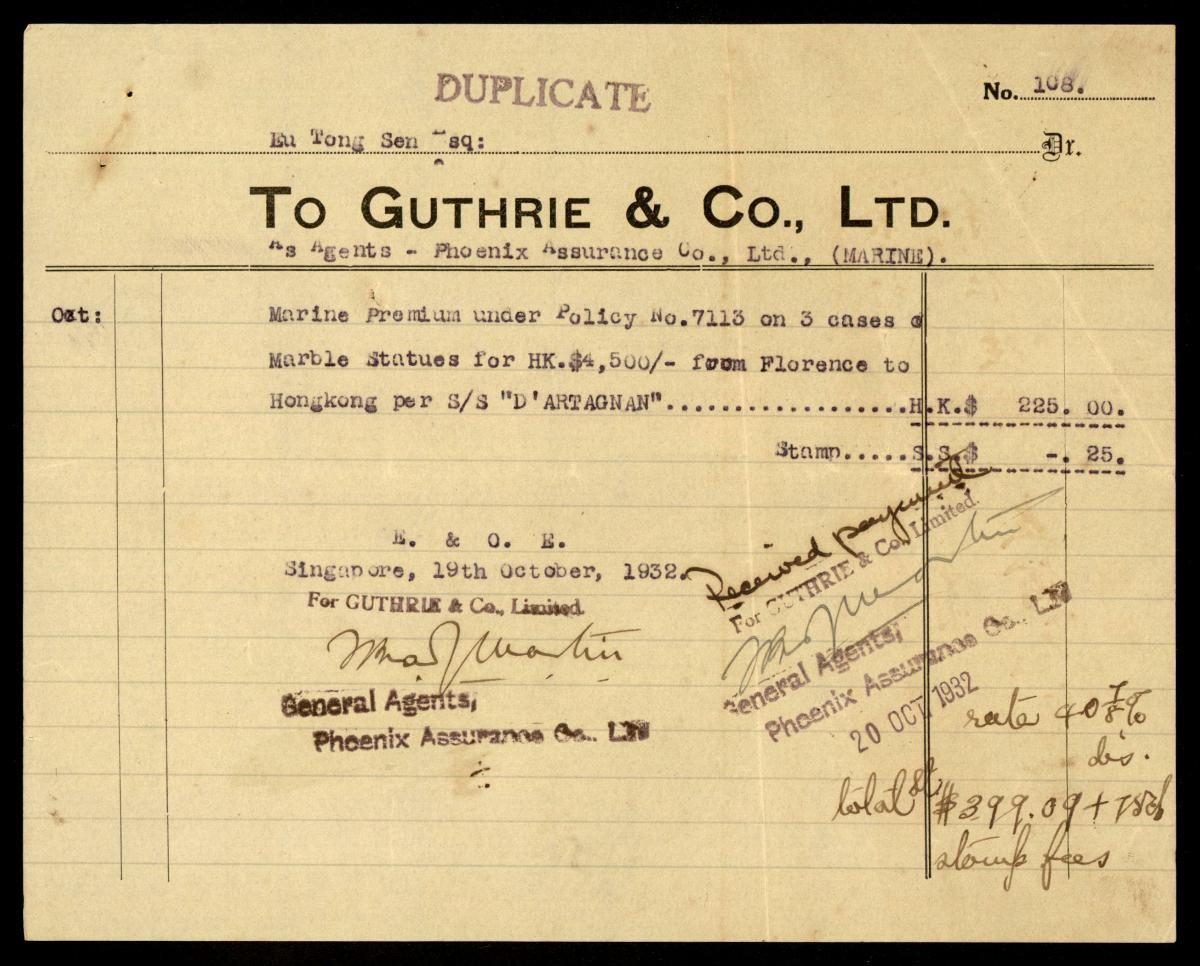 DUPLICATE
No. 108.
Eu Tong Sen Esq: Dr.
TO GUTHRIE & CO., LTD.
As Agents - Phoenix Assurance Co., Ltd., (MARINE).
Oct: Marine Premium under Policy No.7113 on 3 cases o
Marble Statues for HK.$4,500/- from Florence to
Hongkong per S/S "D'ARTAGNAN"...................H.K.$ 225. 00.
Stamp.....S.S.$ -. 25.
E. & O. E.
Singapore, 19th October, 1932.
For GUTHRIE & Co., Limited.
Martin
General Agents,
Phoenix Assurance Co., Ltd
Received payment
For GUTHRIE & Co., Limited.
Martin
General Agents,
Phoenix Assurance Co., Ltd
20 OCT 1932
rate 40 7/8 %
dis.
total
$399.09 +
stamp fees